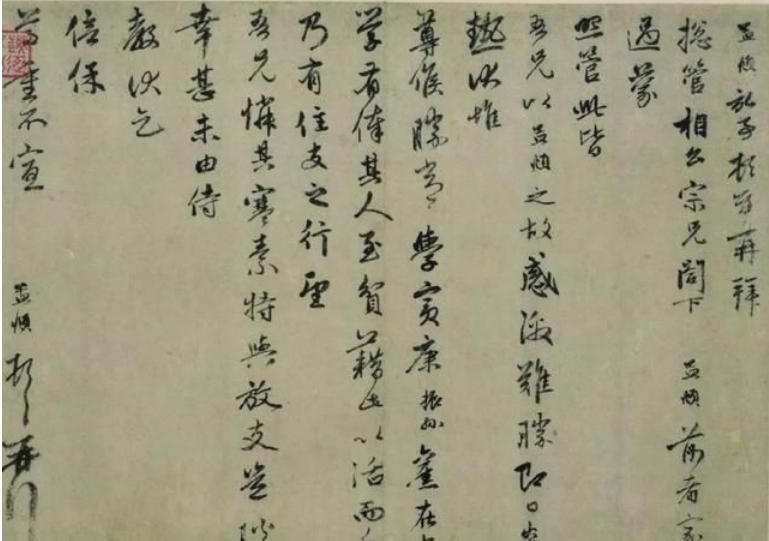 孟頫記事頓首再拜
總管相公宗兄閣下孟頫前者家
過蒙
照管此皆
吾兄以孟頫之故感激難勝即日
熱伏惟
尊候勝常學賓康振孫舊在
学有俸其人至貧藉此以活而
乃有住支之行望
吾兄憐其寒素特與放支豈
幸甚未由侍
教伏乞
倍保
尊重不宣
孟頫頓首